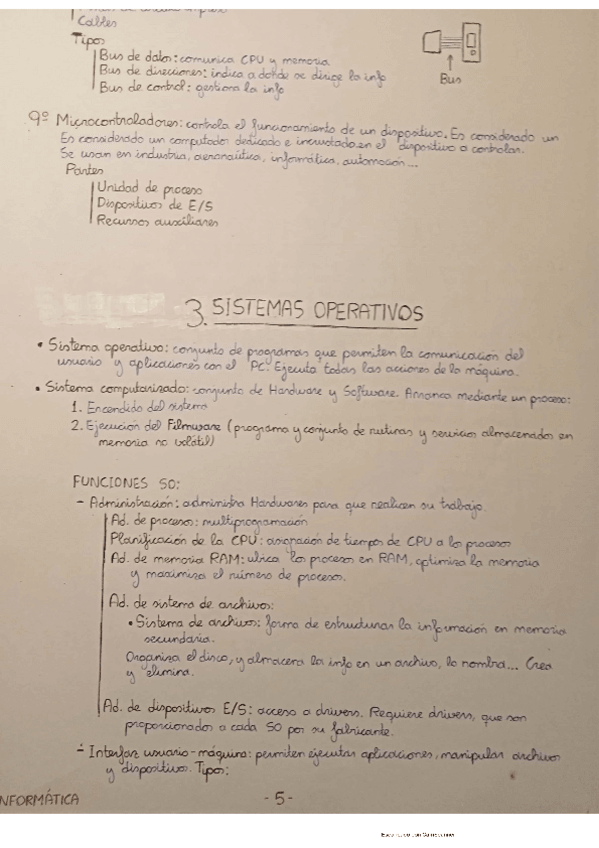 Cables
Tipos
Bus de datos: comunica CPU y memoria
Bus de direcciones: indica a donde se dirige la info
Bus de control: gestiona la info
Bus
9º Microcontroladores: controla el funcionamiento de un dispositivo. Es considerado un
Es considerado un computador dedicado e incrustado en el dispositivo a controlar.
Se usan en industria, aeronaútica, informática, automoción...
Partes
Unidad de proceso
Dispositivos de E/S
Recursos auxiliares
3. SISTEMAS OPERATIVOS
• Sistema operativo: conjunto de programas que permiten la comunicación del
usuario y aplicaciones con el PC. Ejecuta todas las acciones de la máquina.
• Sistema computarizado: conjunto de Hardware y Software. Arranca mediante un proceso:
1. Encendido del sistema
2. Ejecución del Filmware (programa y conjunto de rutinas y servicios almacenados en
memoria no volátil)
FUNCIONES SO:
- Administración: administra Hardwares para que realicen su trabajo.
Ad. de procesos: multiprogramación
Planificación de la CPU: asignación de tiempos de CPU a los procesos
Ad. de memoria RAM: ubica los procesos en RAM, optimiza la memoria
y maximiza el número de procesos.
Ad. de sistema de archivos:
• Sistema de archivos: forma de estructurar la información en memoria
secundaria.
Organiza el disco, y almacena la info en un archivo, lo nombra... Crea
y elimina.
Ad. de dispositivos E/S: acceso a drivers. Requiere drivers, que son
proporcionados a cada SO por su fabricante.
- Interfaz usuario-máquina: permiten ejecutar aplicaciones, manipular archivos
y dispositivos. Tipos:
NFORMÁTICA
- 5 -